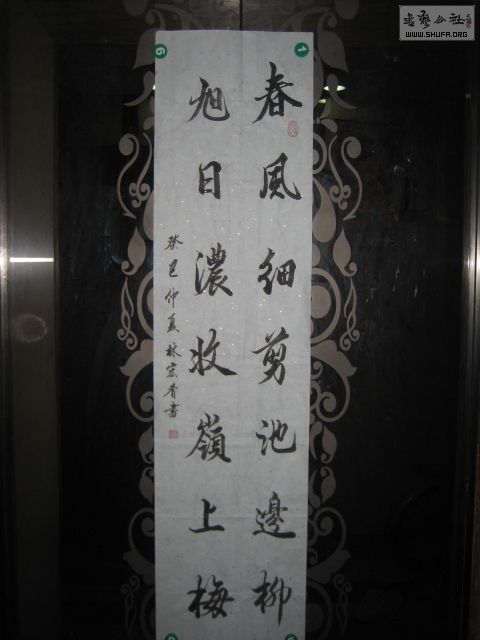 春風細剪池邊柳
旭日濃妝嶺上梅
癸巳仲夏林宏香書
1
6
WWW.SHUFA.ORG